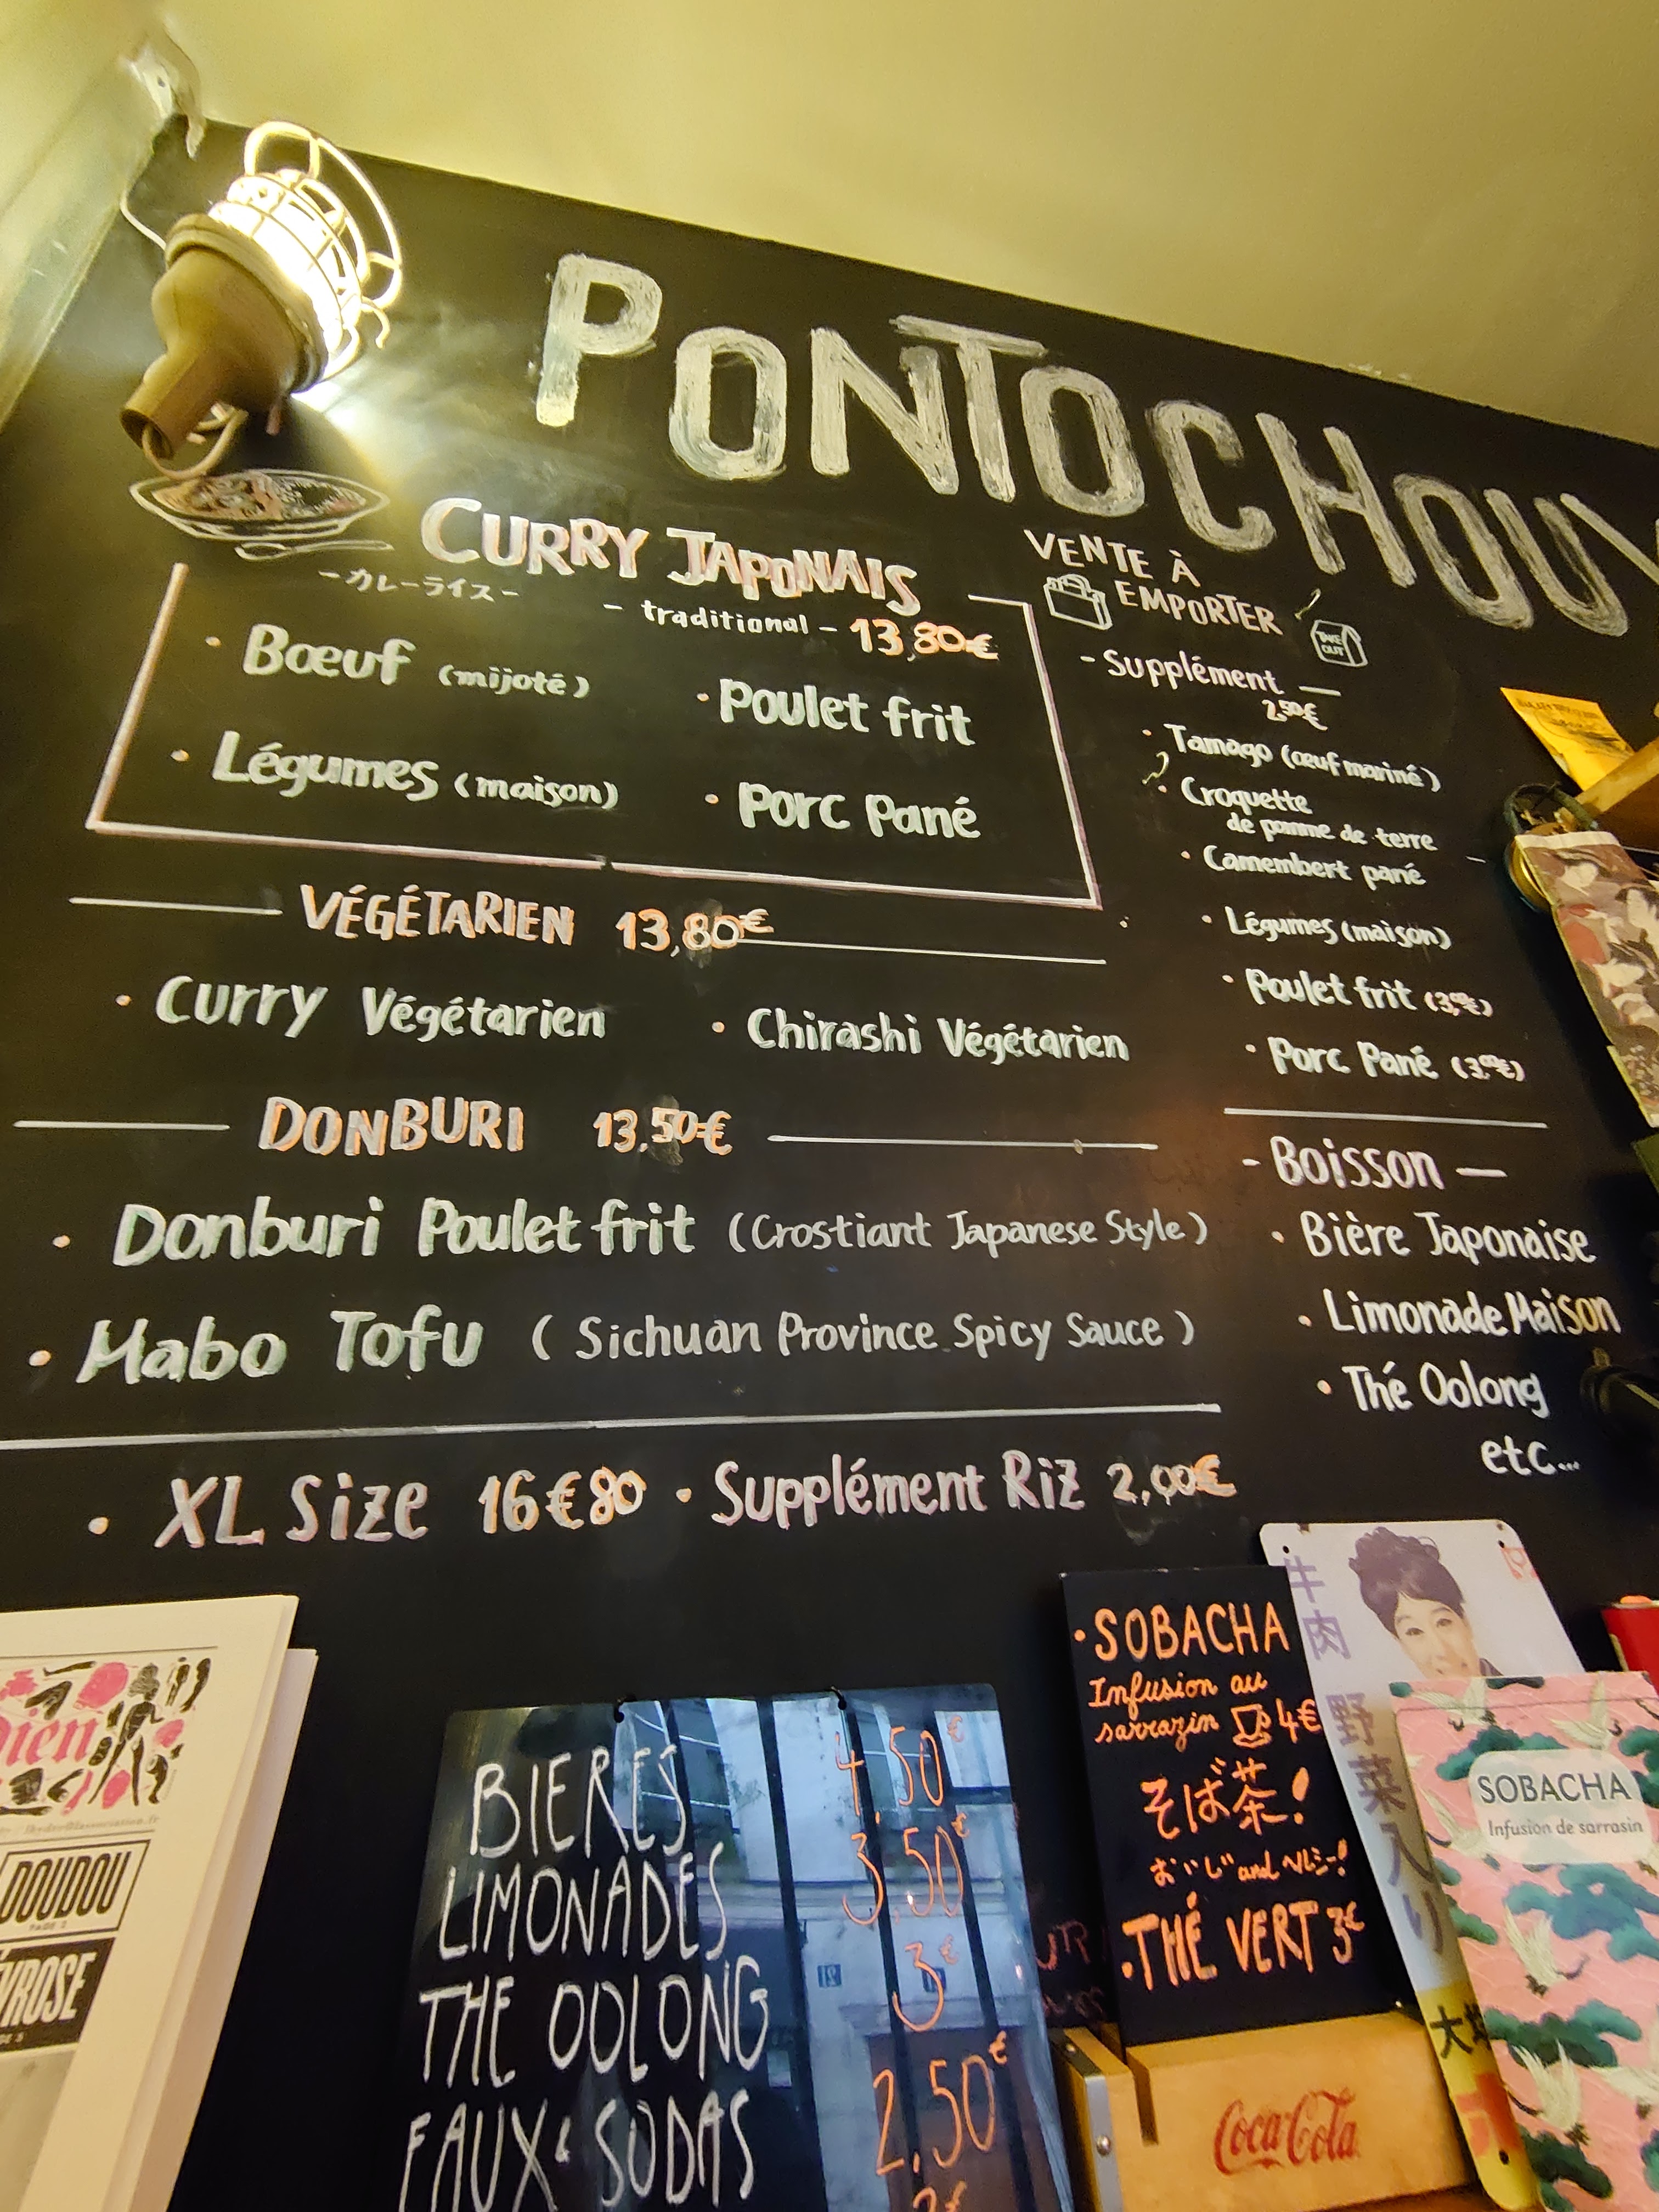 PONTOCHOU
CURRY JAPONAIS
-カレーライス-
- traditional - 13,80€
• Bœuf (mijoté)
• Poulet frit
• Légumes (maison)
• Porc Pané
VÉGÉTARIEN 13,80€
• Curry Végétarien
• Chirashi Végétarien
DONBURI 13.50€
• Donburi Poulet frit (Crostiant Japanese Style)
• Mabo Tofu (Sichuan Province Spicy Sauce)
• XL Size 16€80 • Supplément Riz 2,00€
VENTE À
EMPORTER
TAKE
OUT
- Supplément —
2,50€
• Tamago (œuf mariné)
• Croquette
de pomme de terre
• Camembert pané
• Légumes (maison)
• Poulet frit (3,00€)
• Porc Pané (3.00€)
- Boisson —
• Bière Japonaise
• Limonade Maison
• Thé Oolong
etc...
BIERES 4,50€
LIMONADES 3,50€
THE OOLONG 3€
EAUX & SODAS 2,50€
• SOBACHA
Infusion au
sarrazin 4€
そば茶!
おいじ and ヘルシー!
• THÉ VERT 3€
牛肉 野菜入り
SOBACHA
Infusion de sarrasin
Coca-Cola
dien
DOUDOU
VROSE